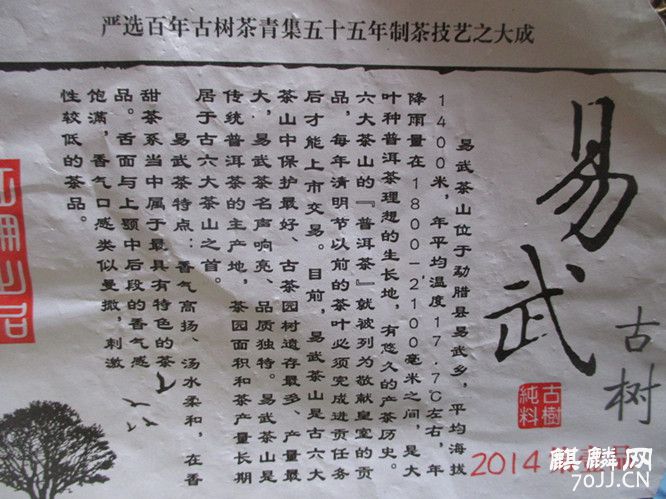 严选百年古树茶青集五十五年制茶技艺之大成
易武
古树
古樹
純料
2014
易武茶山位于勐腊县易武乡，平均海拔
1400米，年平均温度17.7℃左右，年
降雨量在1800-2100毫米之间，是大
叶种普洱茶理想的生长地，有悠久的产茶历史。
六大茶山的『普洱茶』就被列为敬献皇室的贡
品，每年清明节以前的茶叶必须完成进贡任务
后才能上市交易。目前，易武茶山是古六大
茶山中保护最好、古茶园树遗存最多、产量最
大，易武茶名声响亮、品质独特。易武茶山是
传统普洱茶的主产地，茶园面积和茶产量长期
居于古六大茶山之首。
易武茶特点：香气高扬、汤水柔和，在香
甜茶系当中属于最具有特色的茶
品。舌面与上颚中后段的香气感
饱满，香气口感类似曼撒，刺激
性较低的茶品。
麒麟网
70JJ.CN